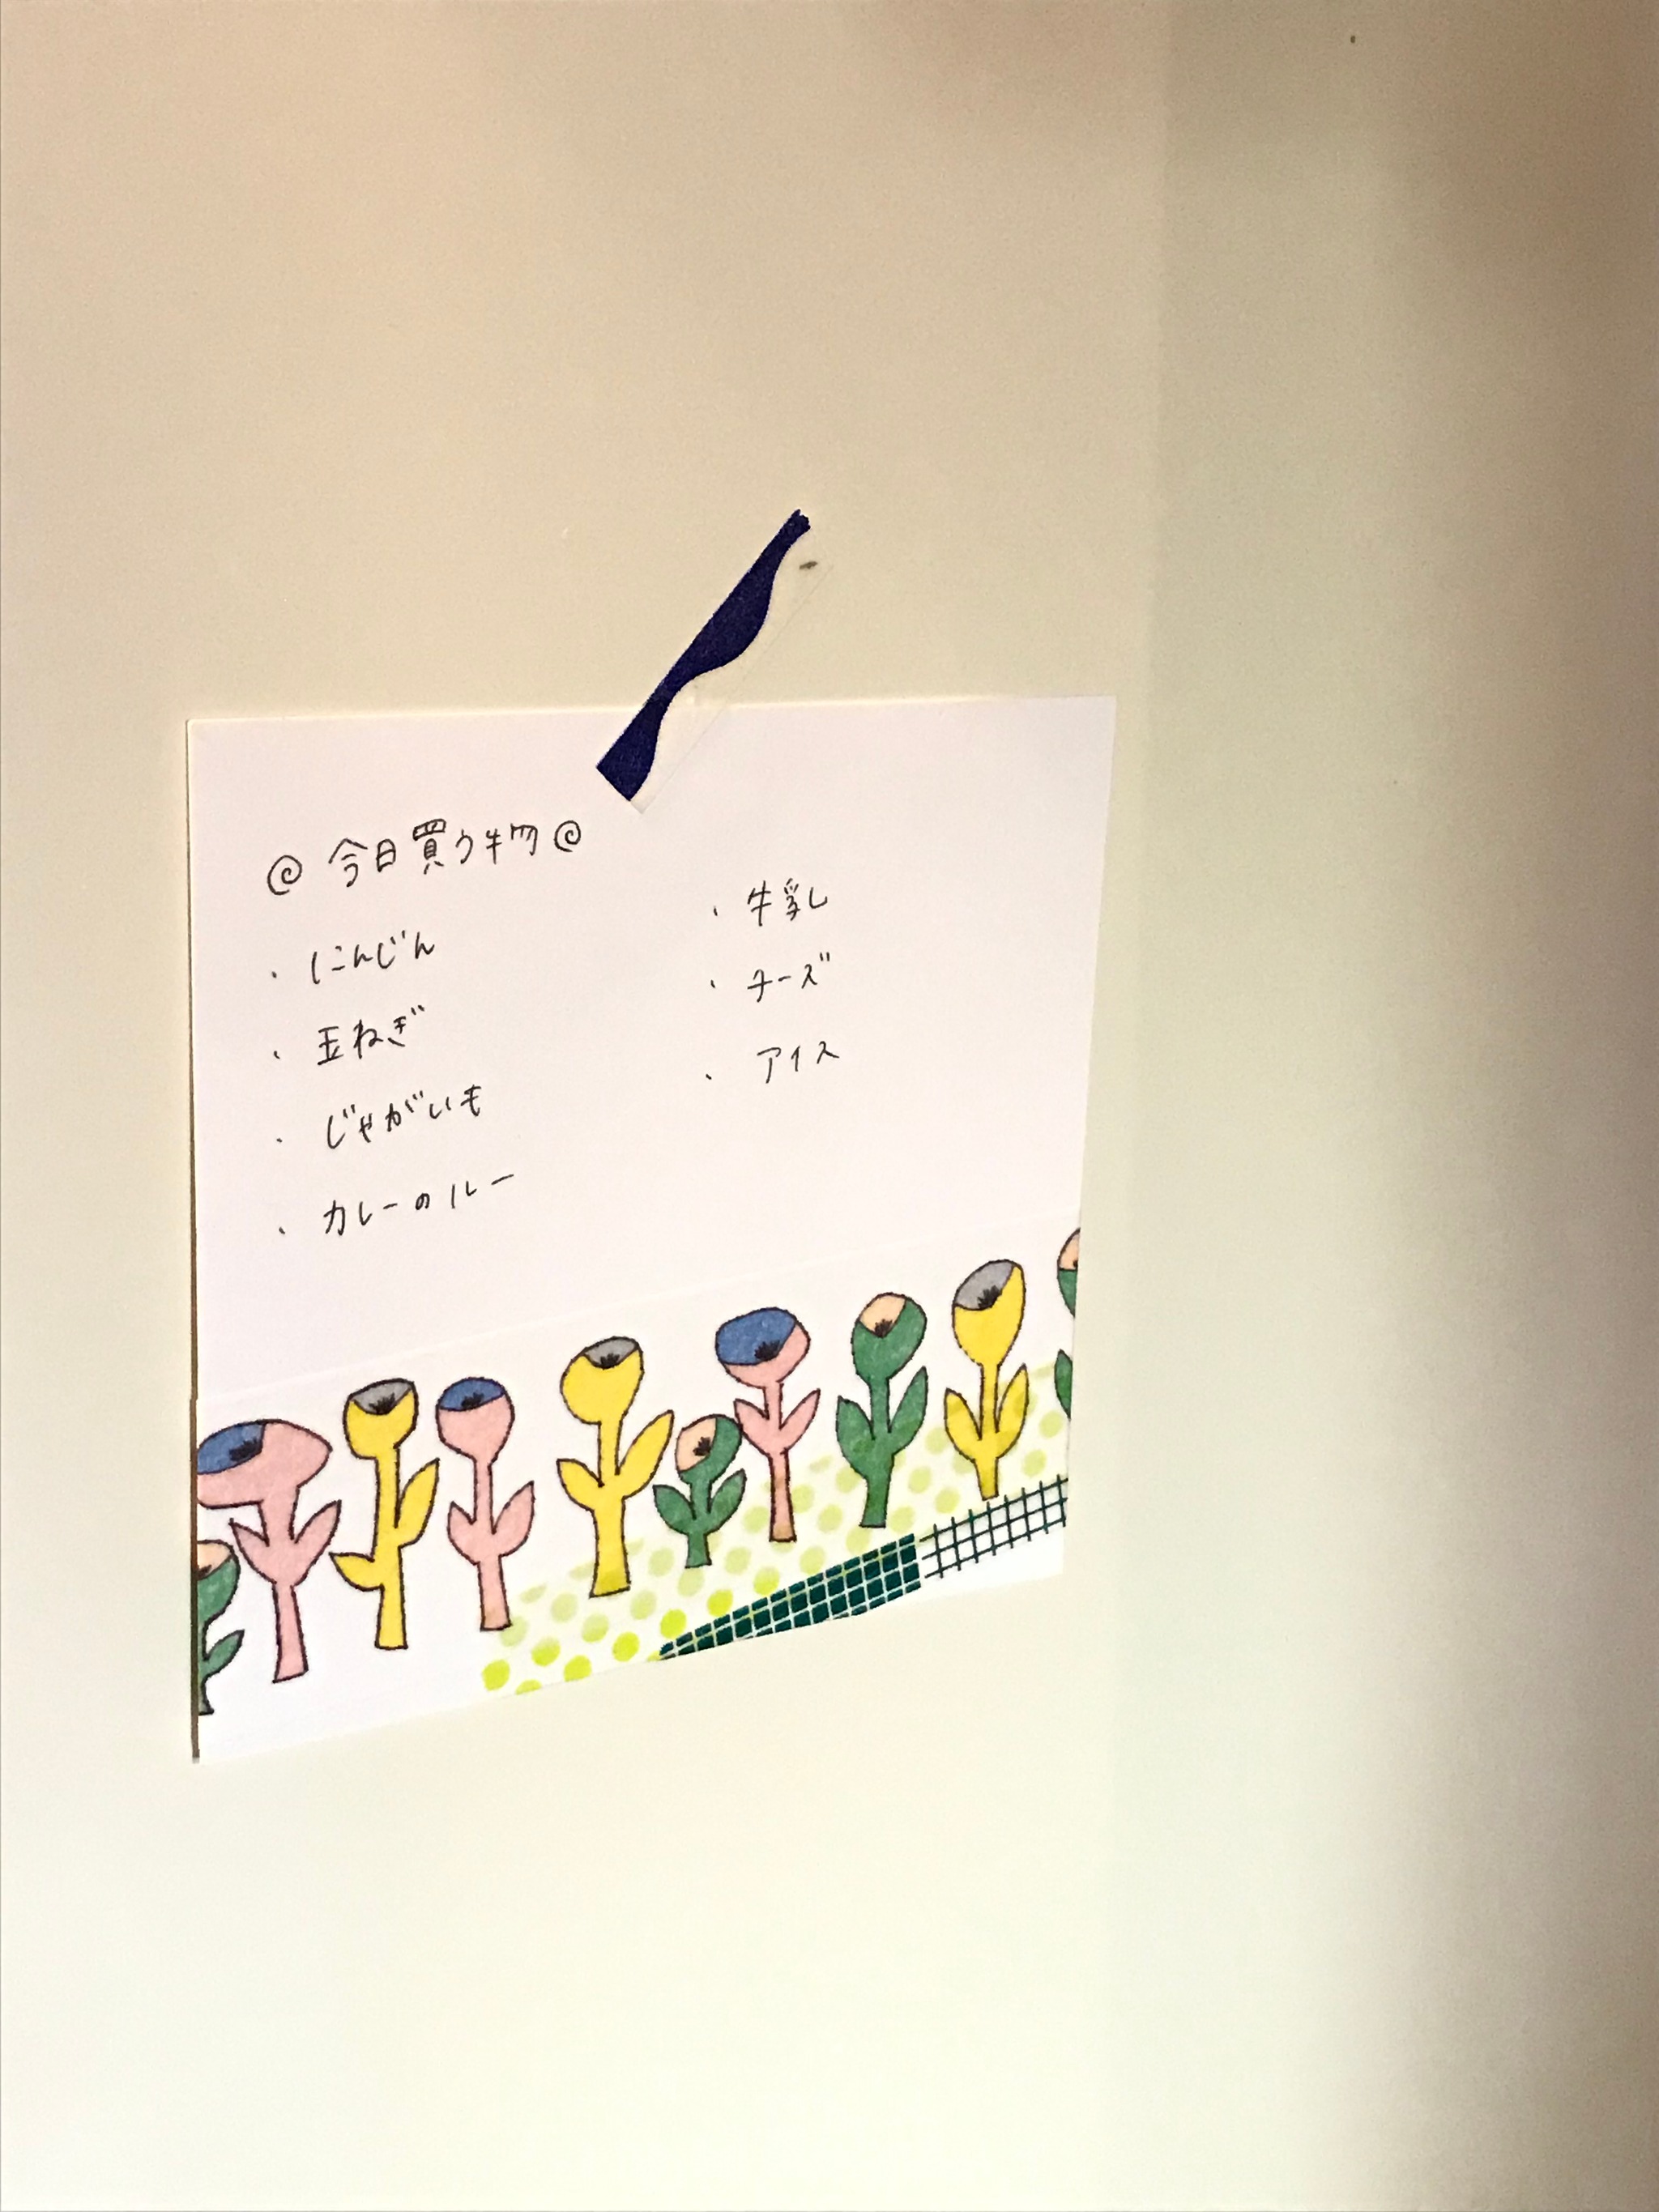 @ 今日買う物 @
・にんじん
・玉ねぎ
・じゃがいも
・カレーのルー
・牛乳
・チーズ
・アイス